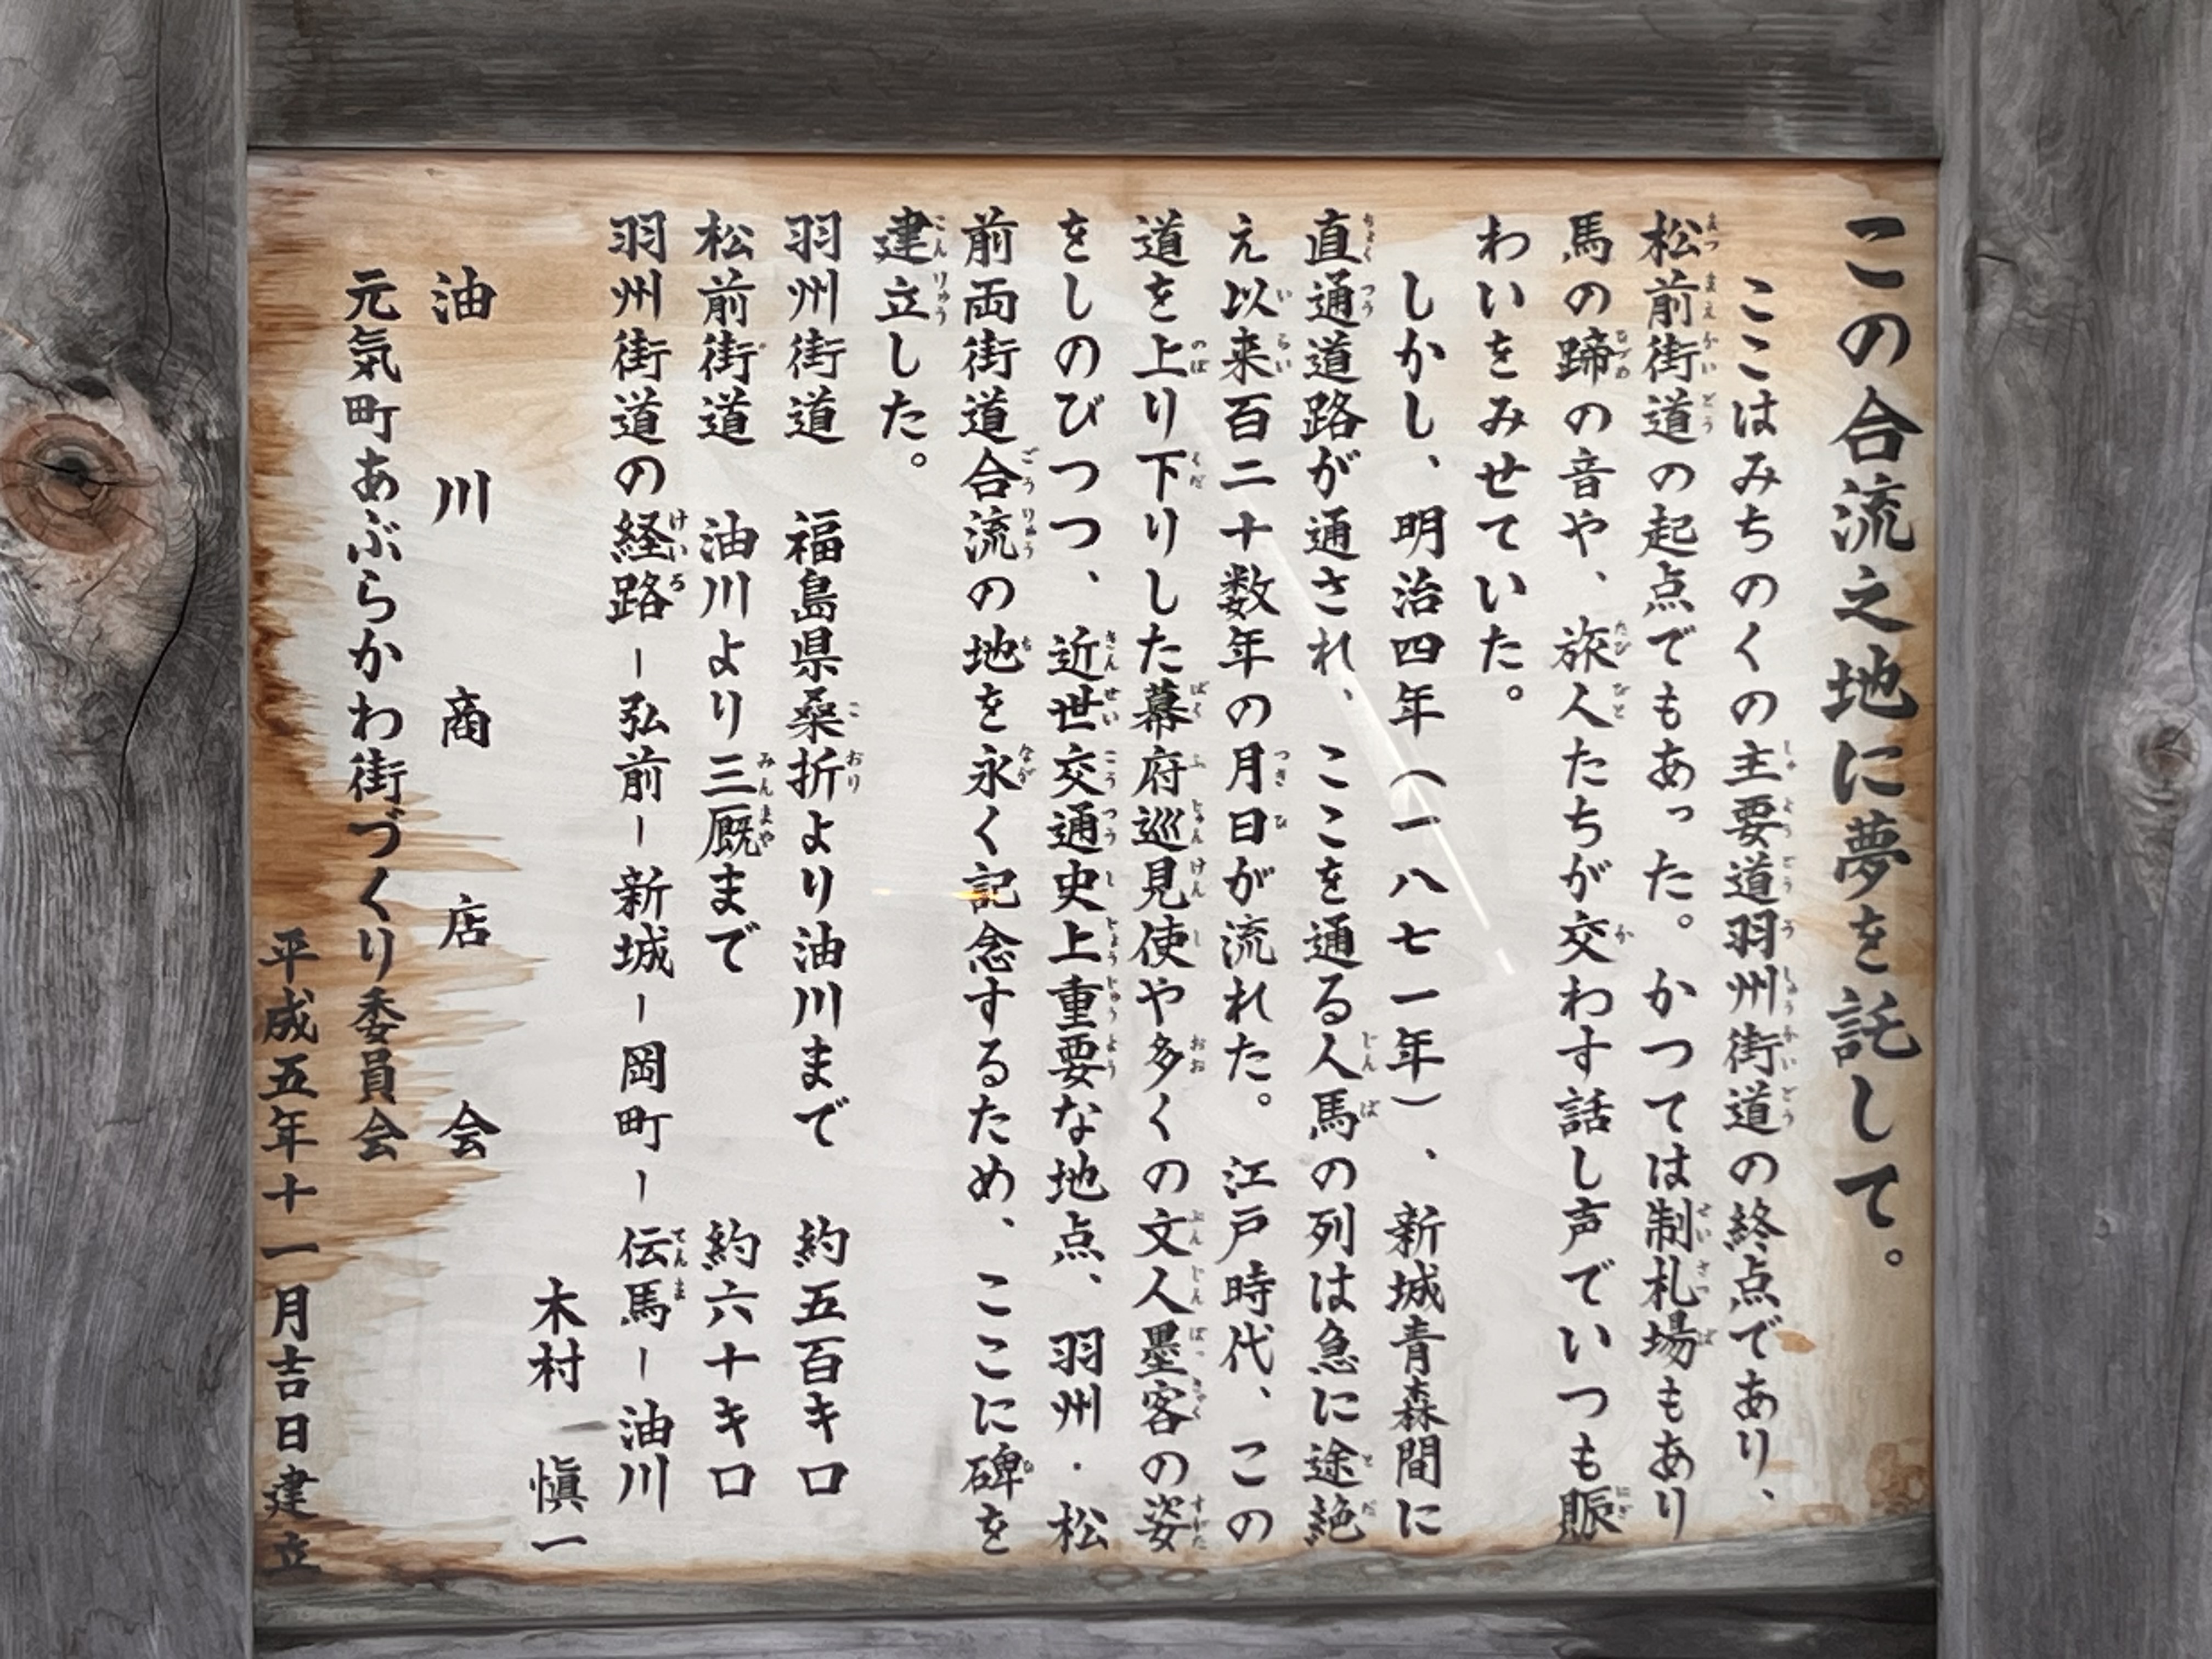 この合流之地に夢を託して。
ここはみちのくの主要道羽州街道の終点であり、
松前街道の起点でもあった。かつては制札場もあり
馬の蹄の音や、旅人たちが交わす話し声でいつも賑
わいをみせていた。
しかし、明治四年（一八七一年）、新城青森間に
直通道路が通され、ここを通る人馬の列は急に途絶
え以来百二十数年の月日が流れた。江戸時代、この
道を上り下りした幕府巡見使や多くの文人墨客の姿
をしのびつつ、近世交通史上重要な地点、羽州・松
前両街道合流の地を永く記念するため、ここに碑を
建立した。
羽州街道　福島県桑折より油川まで　約五百キロ
松前街道　油川より三厩まで　約六十キロ
羽州街道の経路ー弘前ー新城ー岡町ー伝馬ー油川
木村　愼一
油川商店会
元気町あぶらかわ街づくり委員会
平成五年十一月吉日建立